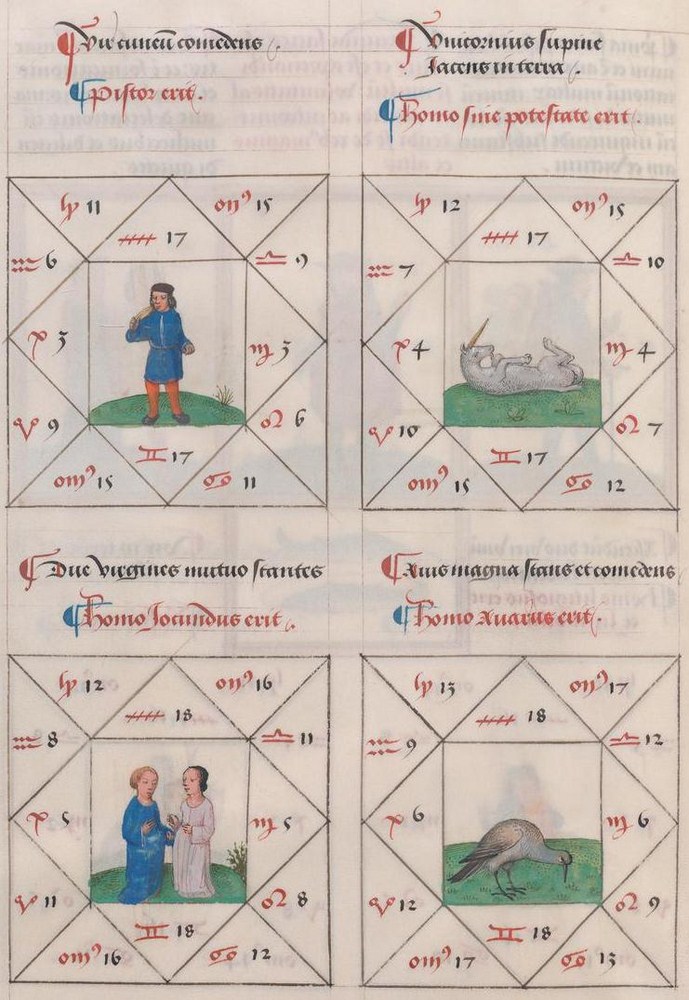 Vir cuneū comedens
Pistor erit.
Vnicornius supine
Jacens in terra.
Homo sine potestate erit.
♑ 11
♏ 15
♐ 17
♒ 6
♎ 9
♓ 3
♍ 3
♈ 9
♌ 6
♊ 17
♉ 15
♋ 11
♑ 12
♏ 15
♐ 17
♒ 7
♎ 10
♓ 4
♍ 4
♈ 10
♌ 7
♊ 17
♉ 15
♋ 12
Due virgines mutuo stantes
Homo Jocundus erit.
Auis magna stans et comedens
Homo Auarus erit.
♑ 12
♏ 16
♐ 18
♒ 8
♎ 11
♓ 5
♍ 5
♈ 11
♌ 8
♊ 18
♉ 16
♋ 12
♑ 13
♏ 17
♐ 18
♒ 9
♎ 12
♓ 6
♍ 6
♈ 12
♌ 9
♊ 18
♉ 17
♋ 13